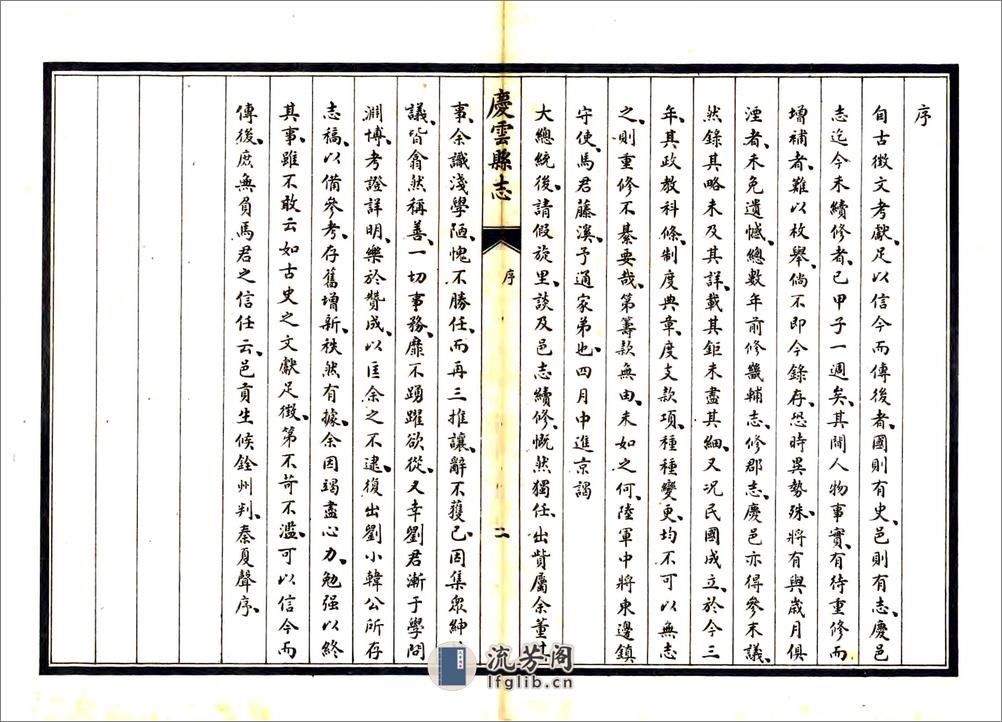 序
自古徵文考獻足以信今而傳後者國則有史邑則有志慶邑
志迄今未續修者已甲子一週矣其間人物事實有待重修而
增補者難以枚舉倘不即今錄存恐時異勢殊將有與歲月俱
湮者未免遺憾總數年前修畿輔志修郡志慶邑亦得參末議
然錄其略未及其詳載其鉅未盡其細又況民國成立於今三
年其政教科條制度典章度支款項種種變更均不可以無志
之則重修不綦要哉第籌款無由未如之何陸軍中將東邊鎮
守使馬君藤溪予通家弟也四月中進京謁
大總統後請假旋里談及邑志續修慨然獨任出貲屬余董其
慶雲縣志
序
二
事余識淺學陋愧不勝任而再三推讓辭不獲已因集眾紳
議皆翕然稱善一切事務靡不踴躍欲從又幸劉君漸于學問
淵博考證詳明樂於贊成以匡余之不逮復出劉小韓公所存
志稿以備參考存舊增新秩然有據余因竭盡心力勉强以終
其事雖不敢云如古史之文獻足徵第不苛不濫可以信今而
傳後庶無負馬君之信任云邑貢生候銓州判秦夏聲序
流芳阁
lfglib.cn